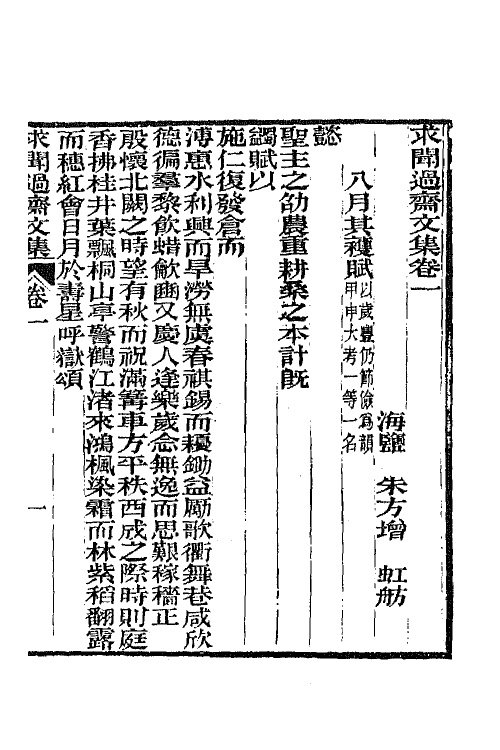 求聞過齋文集卷一
海鹽　朱方增　虹舫
八月其穫賦以歲豐仍節儉為韻甲申大考一等一名
懿
聖主之劭農重耕桑之本計旣
蠲賦以
施仁復發倉而
溥惠水利興而旱澇無虞春祺錫而耰鋤益勵歌衢舞巷咸欣
德徧羣黎飲蜡龡豳又慶人逢樂歲念無逸而思艱稼穡正
殷懷北闕之時望有秋而祝滿篝車方平秩西成之際時則庭
香拂桂井葉飄桐山亭警鶴江渚來鴻楓染霜而林紫稻翻露
而穗紅會日月於壽星呼嶽頌
求聞過齋文集
卷一
一